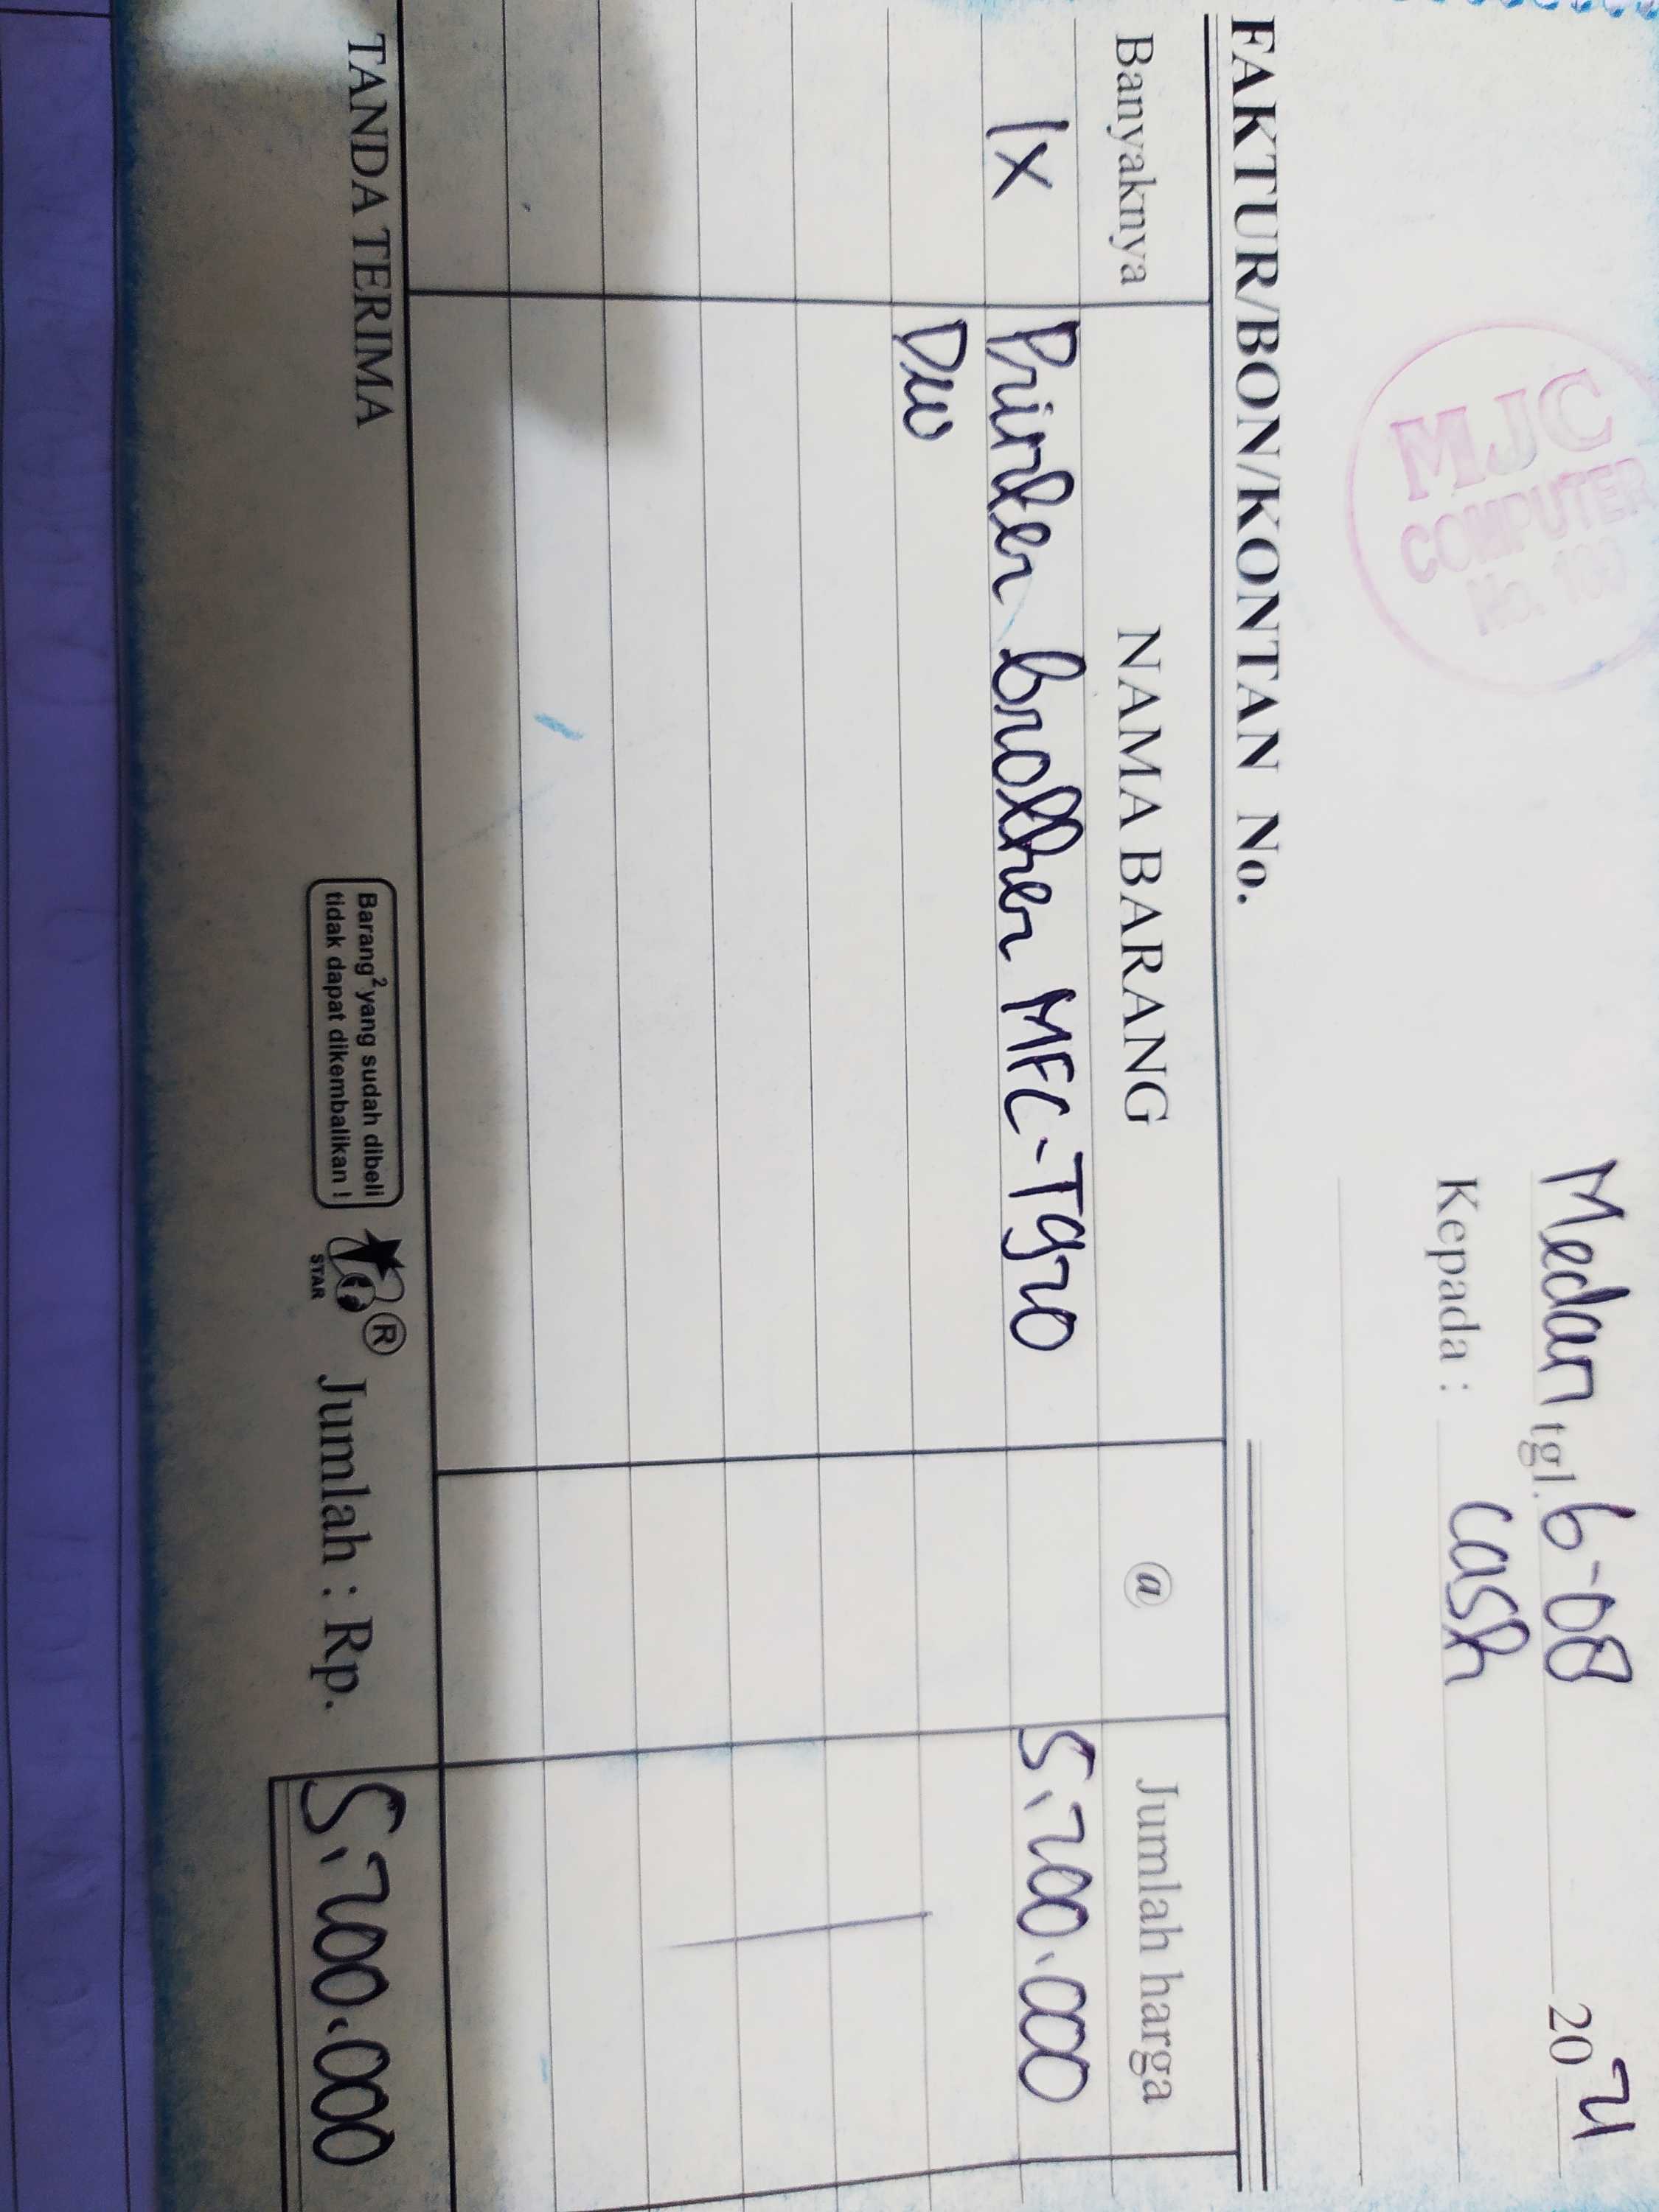 MJC
COMPUTER
No. 189
Medan tgl. 6-08 2024
Kepada : cash
FAKTUR/BON/KONTAN No.
Banyaknya NAMA BARANG @ Jumlah harga
1x Printer brother MFC-T920 5.200.000
DW
TANDA TERIMA
Barang² yang sudah dibeli
tidak dapat dikembalikan !
STAR
®
Jumlah : Rp. 5.200.000